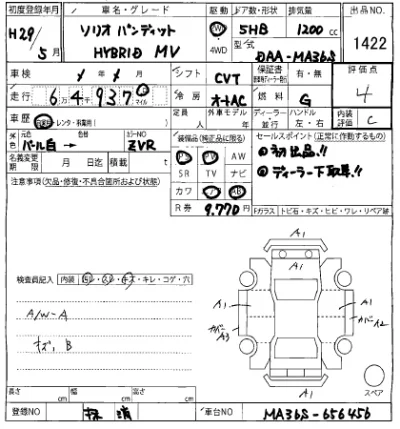 初度登録年月 車名・グレード 駆動 ドア数・形状 排気量 出品NO.
H28/5月 ソリオ バンディット HYBRID MV 4WD 5HB 1200cc 1422
型式 DAA-MA36S
車検 年 月 シフト CVT 保証書 有・無 評価点
走行 6万4千937 マイル 冷房 オートAC 燃料 G 4
車歴 レンタ・和業用( ) 定員 人 外車モデル 年 ディーラー 並行 ハンドル 左・右 内装評価 C
外色 元色 パール白 → 色替 カラーNO ZVR 装備品(純正品に限る) セールスポイント(正常に作動するもの)
名義変更期限 月 日迄 積載 t PS PW AW ①初出品!!
SR TV ナビ ②ディーラー下取車!!
注意事項(欠品・修復・不具合箇所および状態) カワ AB
R券 9,770円 Fガラス トビ石・キズ・ヒビ・ワレ・リペア跡
A1
検査員記入 内装 キズ・キレ・コゲ・穴
A/W-A
A1 A1
カバーA3 カバーA2
キズ、B
A1
スペア
長さ cm 幅 cm 高さ cm
登録NO 抹消 車台NO MA36S-656456